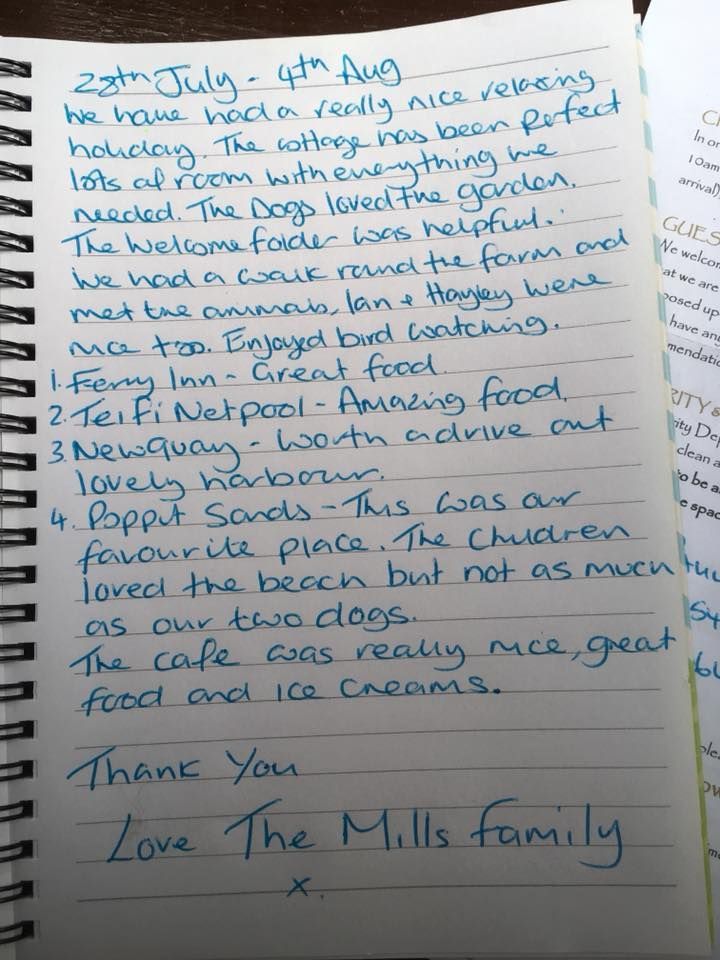 28th July - 4th Aug
We have had a really nice relaxing
holiday. The cottage has been perfect
lots of room with everything we
needed. The Dogs loved the garden.
The Welcome folder was helpful.
We had a walk round the farm and
met the animals, Ian & Hayley were
nice too. Enjoyed bird watching.
1. Ferry Inn - Great food.
2. Teifi Netpool - Amazing food.
3. Newquay - Worth a drive out
lovely harbour.
4. Poppit Sands - This was our
favourite place. The Children
loved the beach but not as much
as our two dogs.
The cafe was really nice, great
food and Ice Creams.
Thank You
Love The Mills family
x.
In or
10am
arrival)
GUES
We welcom
at we are
posed up
have any
mendatio
RITY &
ity Dep
clean a
to be a
e spac